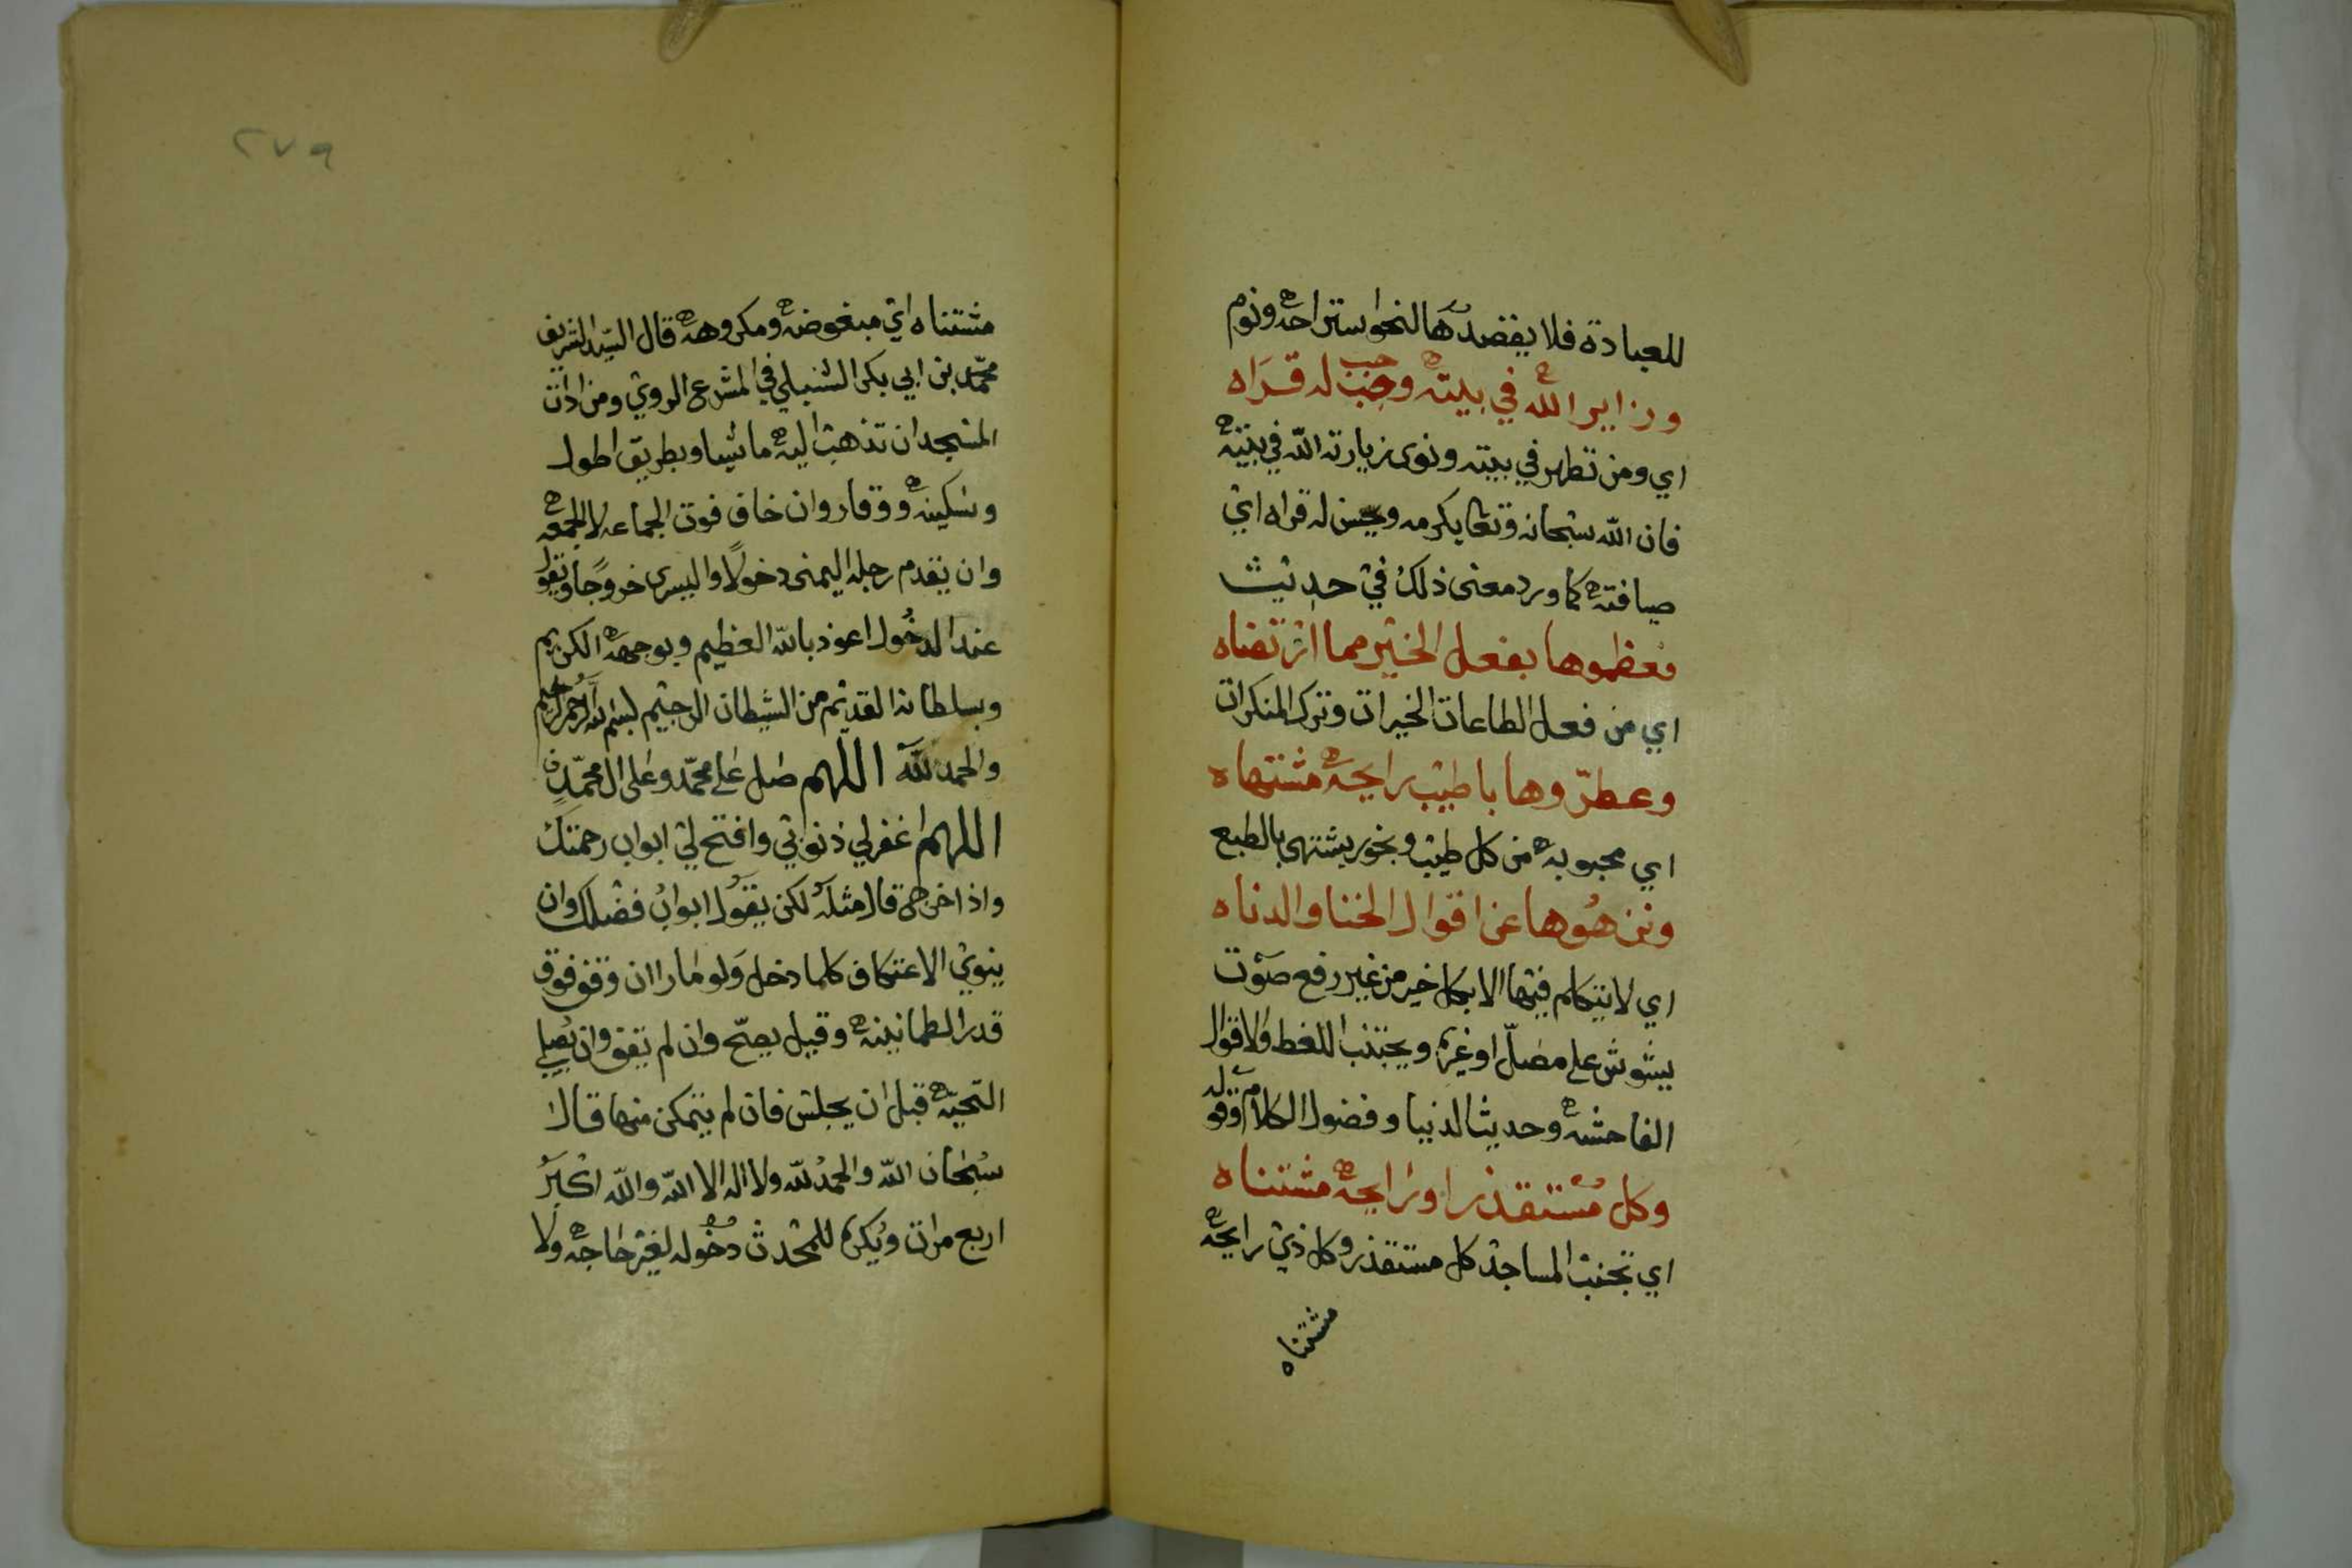 للعبادة فلا يقصدها لنحو استراحة ونوم
وزاير الله في بيته وجب له قراه
اي ومن تطهر في بيته ونوى زيارته الله في بيته
فان الله سبحانه وتعا يكرمه ويحسن له قراه اي
ضيافته كما ورد معنى ذلك في حديث
فعظموها بفعل الخير مما ارتضاه
اي من فعل الطاعات الخيرات وترك المنكرات
وعطروها باطيب رايحة مشتهاه
اي محبوبة من كل طيب وبخور يشتهى بالطبع
ونزهوها عن اقوال الخنا والدناه
اي لا يتكلم فيها الا بكل خير من غير رفع صوت
يشوش على مصل او غيره ويجتنب اللغط والاقوال
الفاحشة وحديث الدنيا وفضول الكلام وقوله
وكل مستقذر او رايحة مشتناه
اي تجنب المساجد كل مستقذر وكل ذي رايحة
مشتناه
٢٧٩
مشتناه اي مبغوضة ومكروهة قال السيد الشريف
محمد بن ابي بكر الشبلي في المشرع الروي ومن اداب
المسجد ان تذهب اليه ماشيا وبطريق اطول
وسكينة ووقار وان خاف فوت الجماعة لا الجمعة
وان يقدم رجله اليمنى دخولا واليسرى خروجا ويقول
عند الدخول اعوذ بالله العظيم وبوجهه الكريم
وبسلطانه القديم من الشيطان الرجيم بسم الله الرحمن الرحيم
والحمد لله اللهم صل على محمد وعلى ال محمد
اللهم اغفر لي ذنوبي وافتح لي ابواب رحمتك
واذا خرج قال مثله لكن يقول ابواب فضلك وان
ينوي الاعتكاف كلما دخل ولو مارا ان وقف فوق
قدر الطمانينة وقيل يصح وان لم يقف وان يصلي
التحية قبل ان يجلس فان لم يتمكن منها قال
سبحان الله والحمد لله ولا اله الا الله والله اكبر
اربع مرات ويكره للمحدث دخوله لغير حاجة ولا